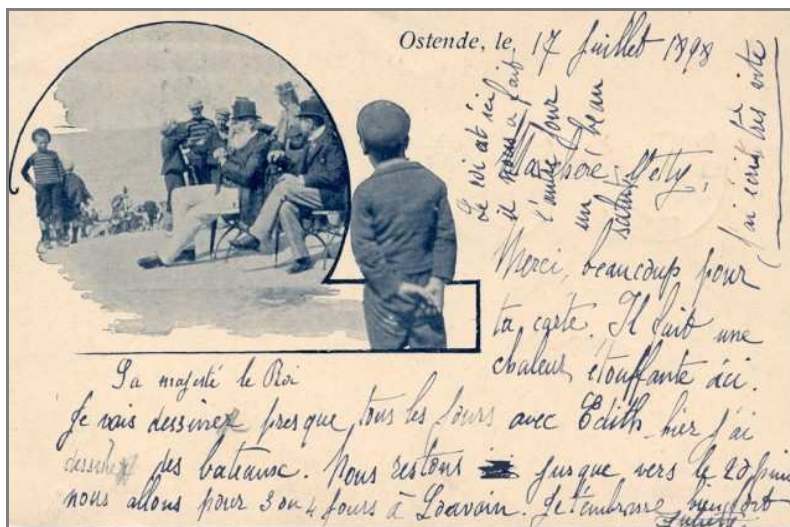 Ostende, le 17 Juillet 1898
Ma chère Netty,
Merci, beaucoup pour
ta carte. Il fait une
chaleur étouffante ici.
Sa majesté le Roi
Je vais dessiner presque tous les jours avec Edith. hier j'ai
dessiné des bateaux. Nous restons jusque vers le 25 puis
nous allons pour 3 ou 4 jours à Louvain. Je t'embrasse bien fort
Juliette
Le roi est ici
il nous a fait
l'autre jour
un beau
salut
J'ai écrit très vite